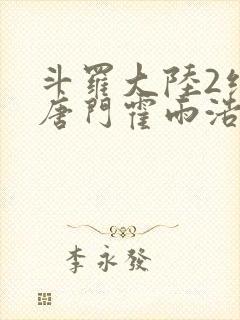 斗羅大陸2
唐門霍雨浩
李永發